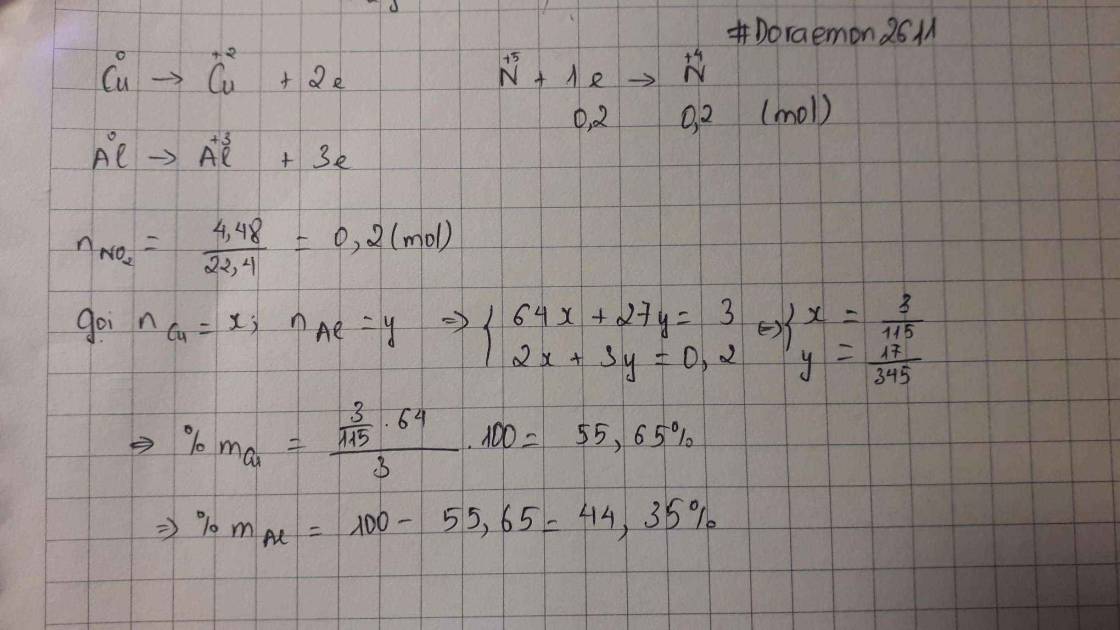 #Doraemon2611
Cu⁰ → Cu⁺² + 2e    N⁺⁵ + 1e → N⁺⁴
0,2    0,2 (mol)
Al⁰ → Al⁺³ + 3e
n NO₂ = 4,48/22,4 = 0,2 (mol)
gọi n Cu = x; n Al = y ⇒ { 64x + 27y = 3 ⇔ { x = 3/115
2x + 3y = 0,2    y = 17/345
⇒ % m Cu = (3/115 . 64)/3 . 100 = 55,65%
⇒ % m Al = 100 - 55,65 = 44,35%